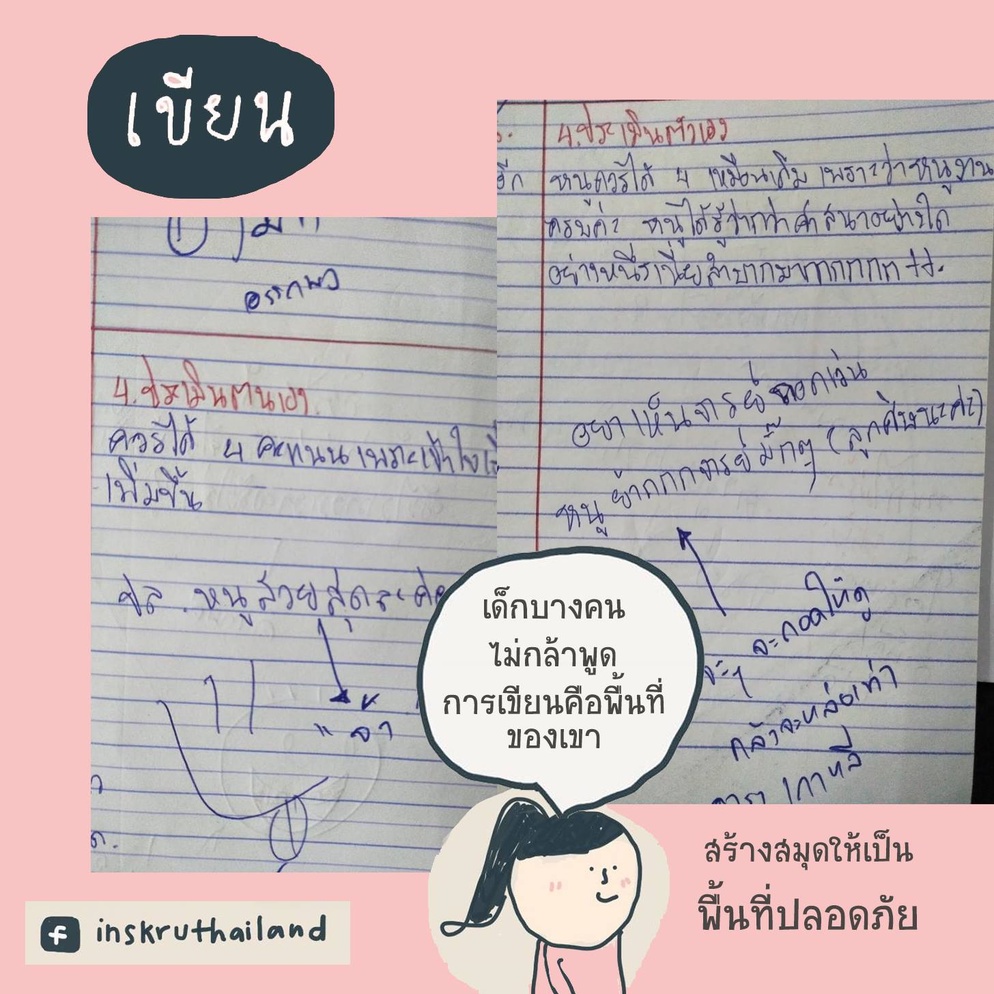 เขียน
อรรถพร
4.ประเมินตนเอง
ควรได้ 4 คะแนนเพราะเข้าใจ
เพิ่มขึ้น
ปล. หนูสวยสุดละค่ะ
จ้า
4.ประเมินตัวเอง
หนูควรได้ 4 เหมือนเดิม เพราะว่าหนูงาน
ครบค่ะ หนูได้รู้ว่ากว่าศาสนาอย่างใด
อย่างหนึ่งเนี่ยลำบากมากกกกก
อยากเห็นจารย์ถอดแว่น
หนู จารย์มั๊กๆ (ลูกศิษนะค่ะ)
จะถอดให้ดู
กลัวจะหล่อเท่า
ดารา เกาหลี
เด็กบางคน
ไม่กล้าพูด
การเขียนคือพื้นที่
ของเขา
สร้างสมุดให้เป็น
พื้นที่ปลอดภัย
inskruthailand